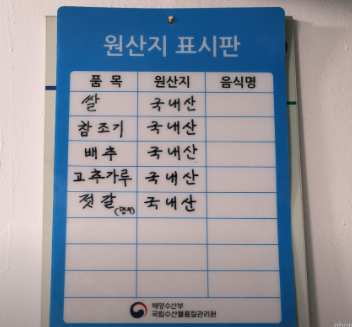 원산지 표시판
품 목 원산지 음식명
쌀 국내산
참조기 국내산
배추 국내산
고추가루 국내산
젓갈 국내산
해양수산부
국립수산물품질관리원